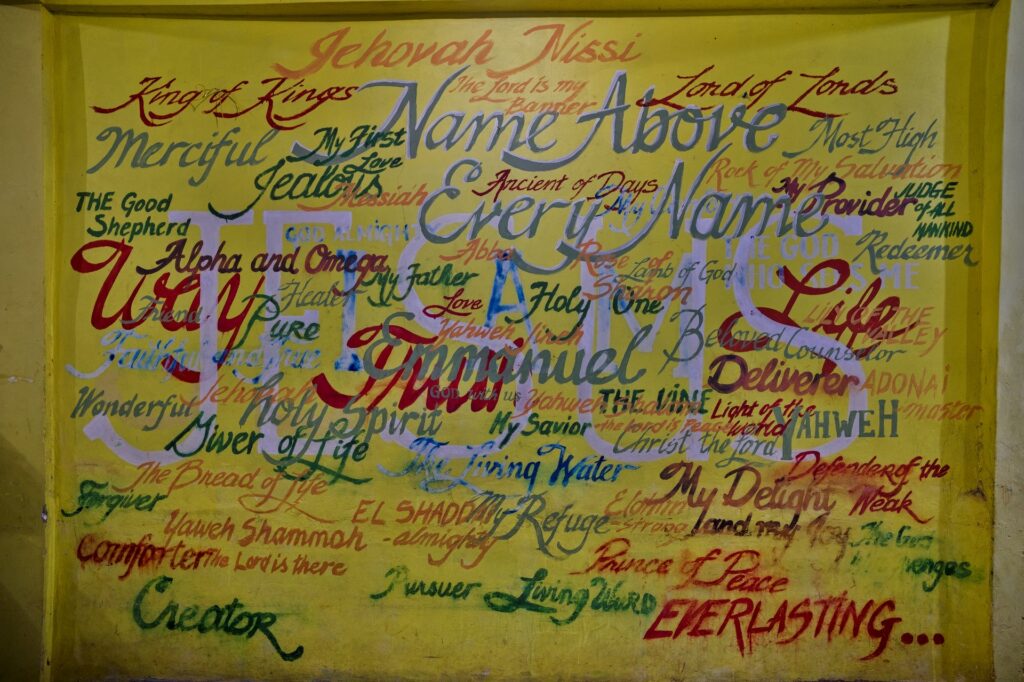 Jehovah Nissi
The Lord is my
Banner
King of Kings
Lord of Lords
Name Above
Every Name
Merciful
My First
Love
Most High
Jealous
Messiah
Ancient of Days
Rock of My Salvation
My Provider
JUDGE
OF ALL
MANKIND
THE Good
Shepherd
JESUS
GOD ALMIGHT
THE GOD
WHO SEES ME
Redeemer
Alpha and Omega
My Father
Abba
Rose of
Sharon
Lamb of God
Way
Life
Healer
Love
Holy One
Friend
Pure
Yahweh Jireh
Emmanuel
God with us
Beloved
Counselor
LILY OF THE
VALLEY
Faithful
Truth
Deliverer
ADONAI
-master
Jehovah
Wonderful
Holy Spirit
Yahweh
-The Lord is Peace
THE VINE
Light of the
world
YAHWEH
Giver of Life
My Savior
Christ the Lord
The Living Water
Defender of the
Weak
The Bread of Life
My Delight
and my Joy
Forgiver
EL SHADDAI
-almighty
My Refuge
Elohim
-strong
Yaweh Shammah
The Lord is there
Comforter
Prince of Peace
Pursuer
Living WORD
Creator
EVERLASTING...